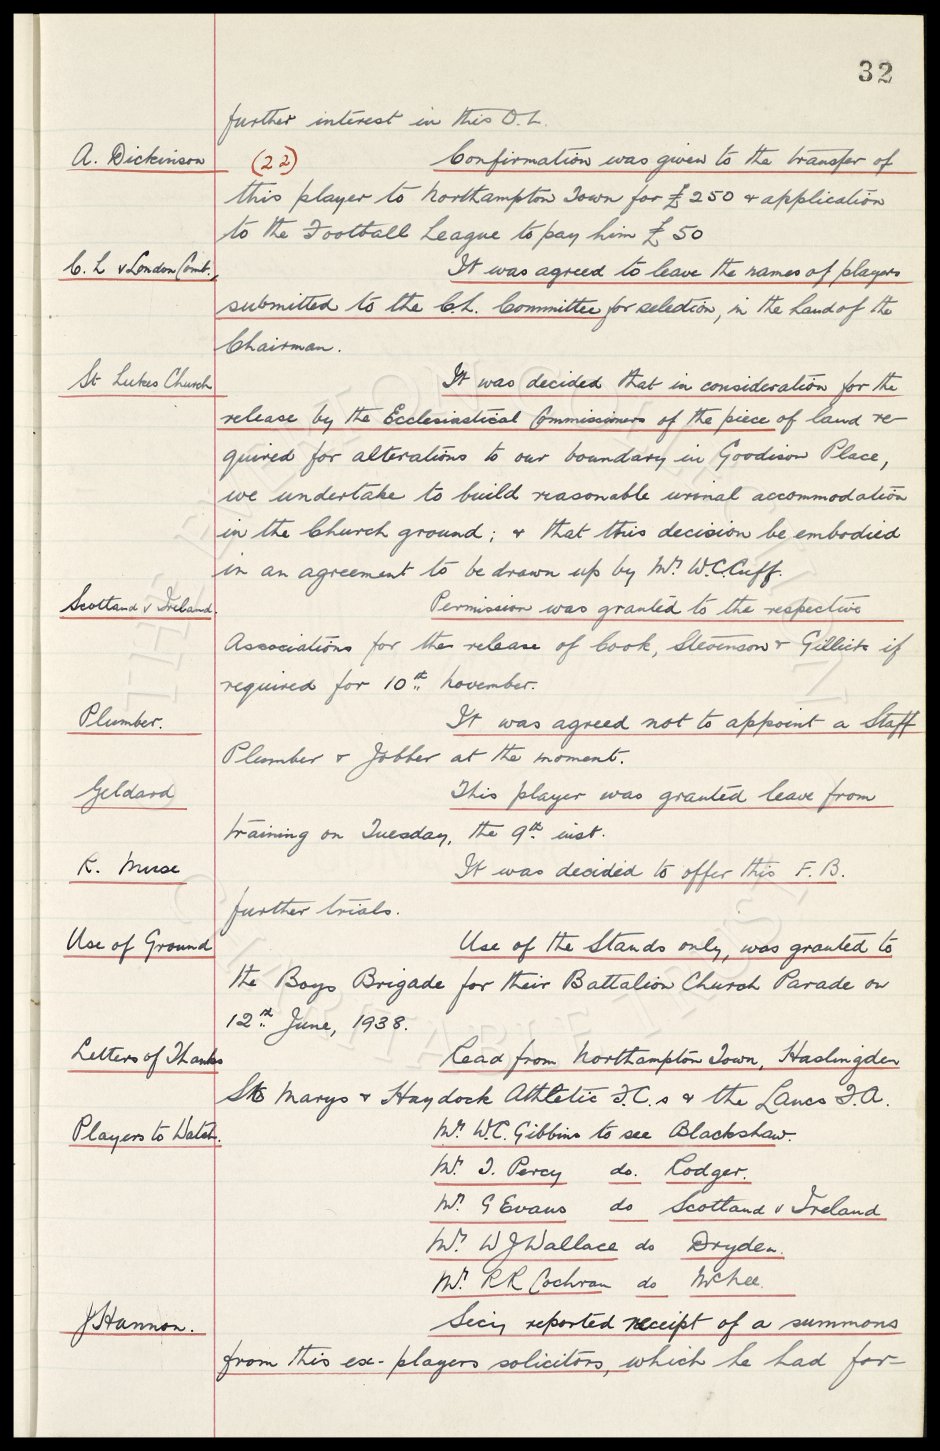 32
further interest in this O.L.
A. Dickinson (22) Confirmation was given to the transfer of
this player to Northampton Town for £250 & application
to the Football League to pay him £50
C. L v London Comb. It was agreed to leave the names of players
submitted to the C.L. Committee for selection, in the hand of the
Chairman.
St Lukes Church It was decided that in consideration for the
release by the Ecclesiastical Commissioners of the piece of land re-
quired for alterations to our boundary in Goodison Place,
we undertake to build reasonable urinal accommodation
in the Church ground; & that this decision be embodied
in an agreement to be drawn up by Mr. W.C. Cuff.
Scotland v Ireland. Permission was granted to the respective
Associations for the release of Cook, Stevenson & Gillick if
required for 10th November.
Plumber. It was agreed not to appoint a Staff
Plumber & Jobber at the moment.
Geldard This player was granted leave from
training on Tuesday, the 9th inst.
K. It was decided to offer this F.B.
further trials.
Use of Ground Use of the Stands only, was granted to
the Boys Brigade for their Battalion Church Parade on
12th June, 1938.
Letters of Thanks Read from Northampton Town, Haslingden
St Marys & Haydock Athletic F.C.s & the Lancs F.A.
Players to Watch. Mr. W.C. Gibbins to see Blackshaw.
Mr. T. Percy do. Rodger.
Mr. G Evans do Scotland v Ireland
Mr. W J Wallace do Dryden.
Mr. R R Cochran do
J Hannon. Secy reported receipt of a summons
from this ex-players solicitors, which he had for-